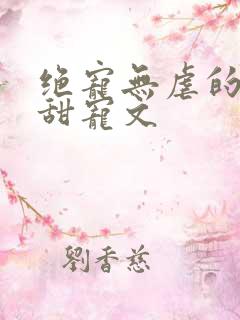 绝寵無虐的
甜寵文
劉香慈